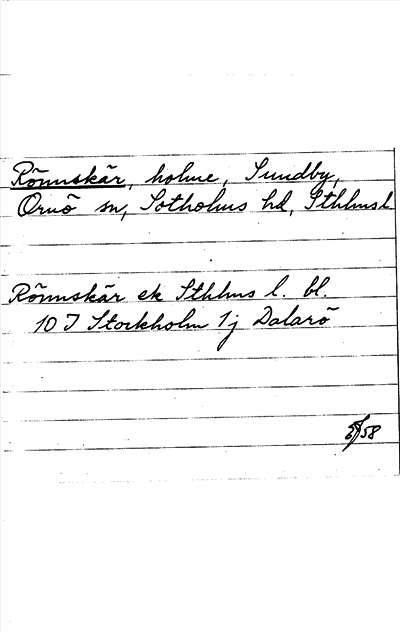 Rönnskär, holme, Sundby,
Ornö sn, Sotholms hd, Sthlmsl
Rönnskär ek Sthlms l. bl.
10 I Stockholm 1j Dalarö
/58